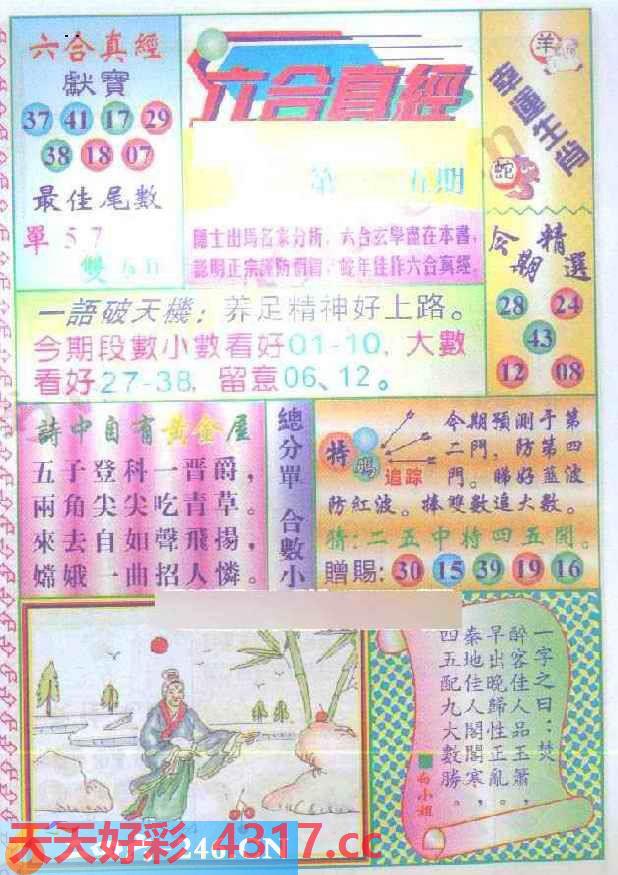 六合真經
獻寶
37 41 17 29
38 18 07
最佳尾數
單 5 7
雙
六合真經
第 五期
隱士出馬名家分析,六合玄學盡在本書,
認明正宗謹防假冒,蛇年佳作六合真經.
羊
幸運生肖
蛇
今期精選
28 24
43
12 08
一語破天機:养足精神好上路。
今期段數小數看好01-10,大數
看好27-38,留意06、12。
詩中自有黃金屋
五子登科一晋爵,
兩角尖尖吃青草。
來去自如聲飛揚,
嫦娥一曲招人憐。
總分單 合數小
特碼
追踪
今期預測于第
二門,防第四
門。睇好藍波
防紅波。捧雙數追大數。
猜:二五中特四五開。
贈賜:30 15 39 19 16
一字之曰:焚
醉客佳人品玉簫,
早出晚歸性正亂。
秦地佳人閣閣寒,
四五配九大數勝。
白小姐
246.CN
天天好彩 4317.cc